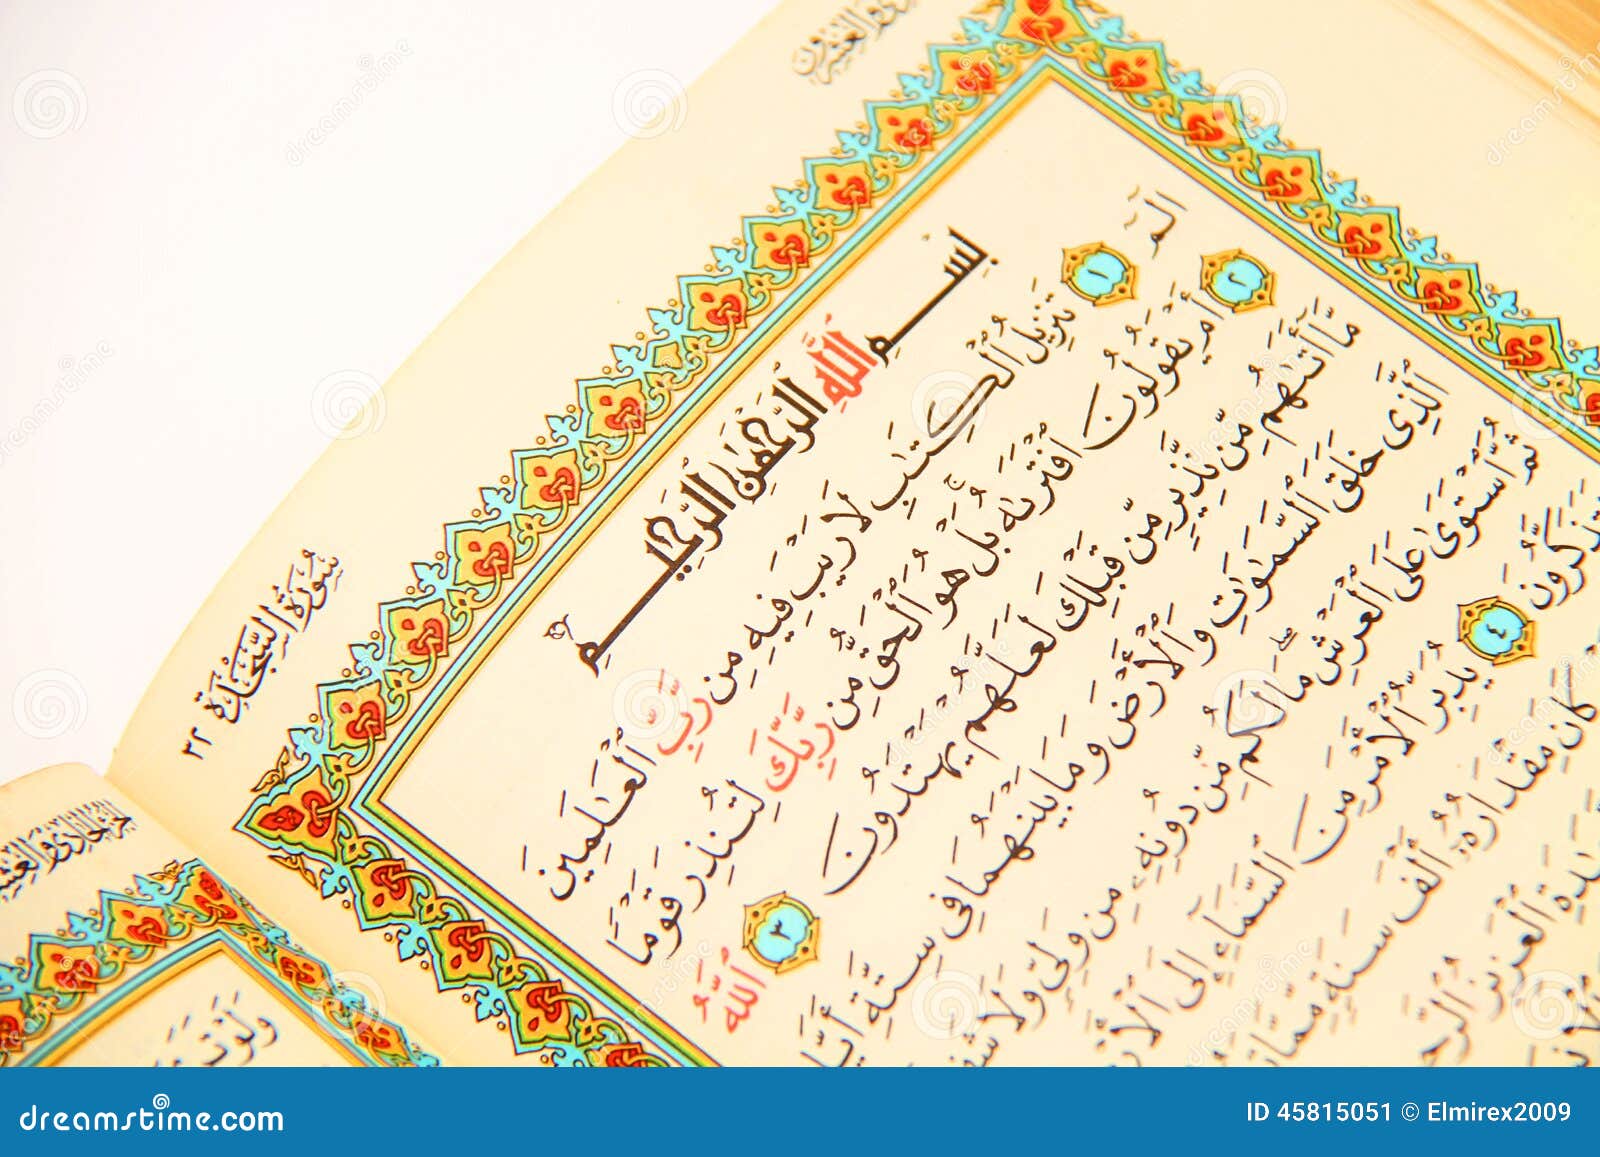 والعشرون
سُورَةُ السَّجْدَةِ ٣٢
بِسْمِ اللَّهِ الرَّحْمَٰنِ الرَّحِيمِ
الٓمٓ ١ تَنزِيلُ ٱلْكِتَٰبِ لَا رَيْبَ فِيهِ مِن رَّبِّ ٱلْعَٰلَمِينَ
٢ أَمْ يَقُولُونَ ٱفْتَرَىٰهُ بَلْ هُوَ ٱلْحَقُّ مِن رَّبِّكَ لِتُنذِرَ قَوْمًا
مَّآ أَتَىٰهُم مِّن نَّذِيرٍ مِّن قَبْلِكَ لَعَلَّهُمْ يَهْتَدُونَ ٣ ٱللَّهُ
ٱلَّذِى خَلَقَ ٱلسَّمَٰوَٰتِ وَٱلْأَرْضَ وَمَا بَيْنَهُمَا فِى سِتَّةِ أَيَّا
ثُمَّ ٱسْتَوَىٰ عَلَى ٱلْعَرْشِ مَا لَكُم مِّن دُونِهِۦ مِن وَلِىٍّ وَلَا شَف
تَتَذَكَّرُونَ ٤ يُدَبِّرُ ٱلْأَمْرَ مِنَ ٱلسَّمَآءِ إِلَى ٱلْأَر
كَانَ مِقْدَارُهُۥٓ أَلْفَ سَنَةٍ مِّمَّا
ٱلْعَزِيزُ ٱلرَّح
الجزء الحادي والعشر
وَلَوْ تَرَ
dreamstime.com
ID 45815051 © Elmirex2009